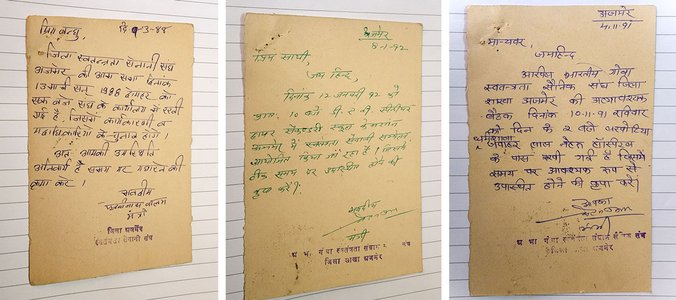 प्रिय बन्धु,
दि 9-3-88
जिला स्वतन्त्रता सेनानी संघ
अजमेर की आम सभा दिनांक
13 मार्च सन् 1988 दोपहर को
संघ के कार्यालय में रखी
गई है। जिसमें कार्यकारणी व
पदाधिकारियों के चुनाव होंगे।
अतः आपकी उपस्थिति
अनिवार्य है समय पर पधारने की
कृपा करें।
भवदीय
मंत्री
जिला अजमेर
स्वतंत्रता सेनानी संघ
अजमेर
8-1-92
प्रिय साथी,
जय हिन्द,
दिनांक 12 जनवरी 92 को
प्रातः 10 बजे
हायर सैकण्डरी स्कूल
अजमेर में स्वतन्त्रता सेनानी सम्मेलन
आयोजित किया जा रहा है। जिसमें
ठीक समय पर उपस्थित होने की
कृपा करें।
भवदीय
मंत्री
जिला शाखा अजमेर
अजमेर
4-11-91
मान्यवर,
जयहिन्द
अखिल भारतीय गोवा
स्वतन्त्रता सैनिक संघ जिला
शाखा अजमेर की अत्यावश्यक
बैठक दिनांक 10-11-91 रविवार
को दिन के 2 बजे
धर्मशाला
जवाहर लाल नेहरू हॉस्पिटल
के पास रखी गई है जिसमें
समय पर आवश्यक रूप से
उपस्थित होने की कृपा करें।
आपका
मंत्री
जिला शाखा अजमेर